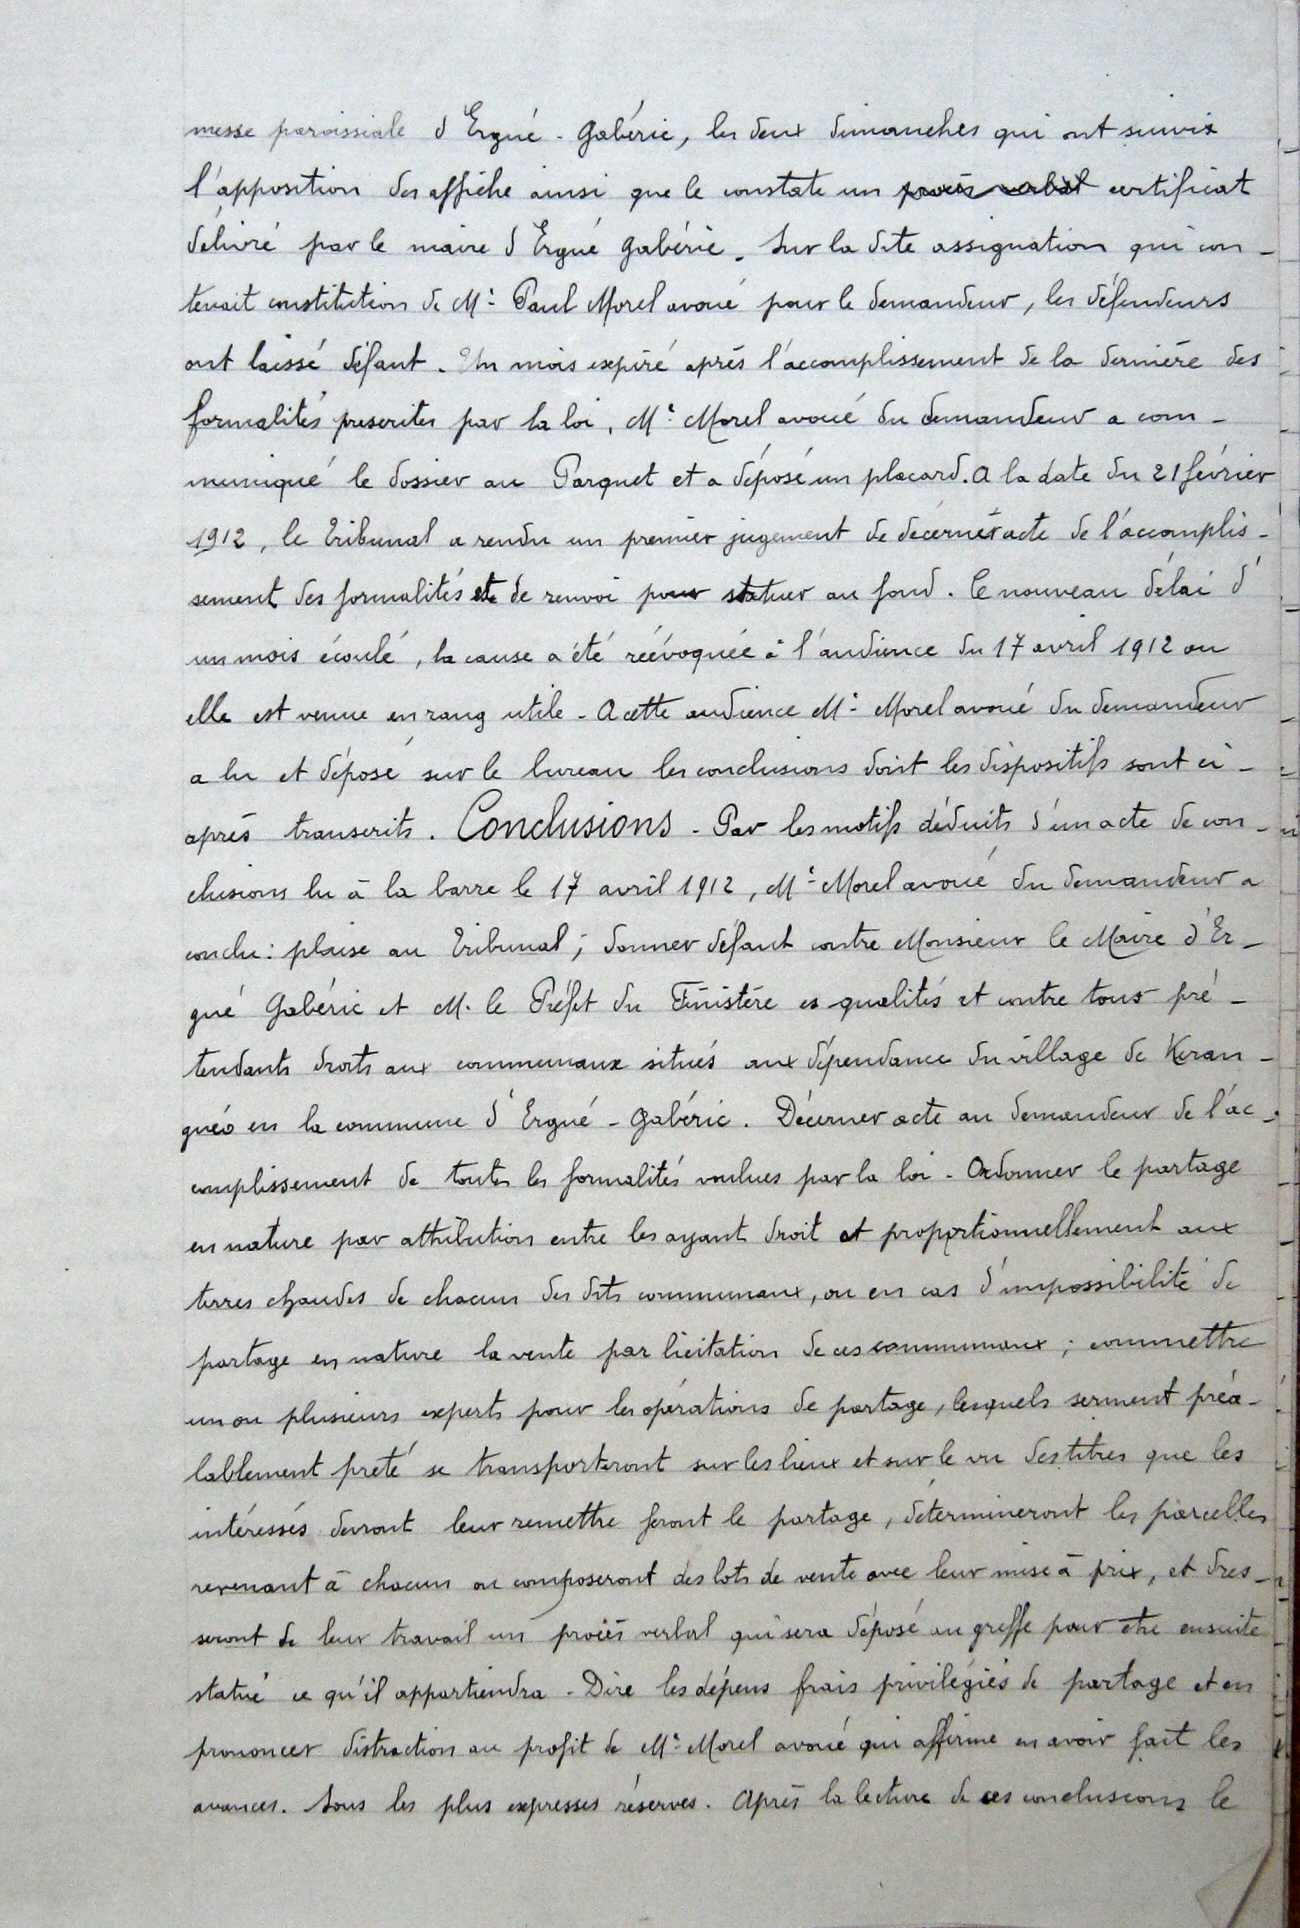 messe paroissiale d'Ergué-Gabéric, les deux dimanches qui ont suivis
l'apposition des affiche ainsi que le constate un procès verbal certificat
délivré par le maire d'Ergué Gabéric. Sur la dite assignation qui con-
tenait constitution de Me Paul Morel avoué pour le demandeur, les défendeurs
ont laissé défaut. Un mois expiré après l'accomplissement de la dernière des
formalités prescrites par la loi, Me Morel avoué du demandeur a com-
muniqué le dossier au Parquet et a déposé un placard. A la date du 21 février
1912, le Tribunal a rendu un premier jugement de décerner acte de l'accomplis-
sement des formalités et de renvoi pour statuer au fond. Ce nouveau délai d'
un mois écoulé, la cause a été réévoquée à l'audience du 17 avril 1912 ou
elle est venue en rang utile - A cette audience Me Morel avoué du demandeur
a lu et déposé sur le bureau les conclusions doint les dispositifs sont ci-
après transcrits. Conclusions - Par les motifs déduits d'un acte de con-
clusions lu à la barre le 17 avril 1912, Me Morel avoué du demandeur a
conclu: plaise au Tribunal; donner défaut contre Monsieur le Maire d'Er-
gué Gabéric et M. le Préfet du Finistère es qualités et contre tous pré-
tendants droits aux communaux situés aux dépendance du village de Keran-
guéo en la commune d'Ergué-Gabéric. Décerner acte au demandeur de l'ac-
complissement de toutes les formalités voulues par la loi - Ordonner le partage
en nature par attribution entre les ayant droit et proportionnellement aux
terres chaudes de chacun des dits communaux, ou en cas d'impossibilité de
partage en nature la vente par licitation de ces communaux; commettre
un ou plusieurs experts pour les opérations de partage, lesquels serment préa-
lablement prêté se transporteront sur les lieux et sur le vu des titres que les
intéressés devront leur remettre feront le partage, détermineront les parcelles
revenant à chacun ou composeront des lots de vente avec leur mise à prix, et dres-
seront de leur travail un procès verbal qui sera déposé au greffe pour etre ensuite
statué ce qu'il appartiendra - Dire les dépens frais privilégiés de partage et en
prononcer distraction au profit de Me Morel avoué qui affirme en avoir fait les
avances. Sous les plus expresses réserves. Après la lecture de ces conclusions le